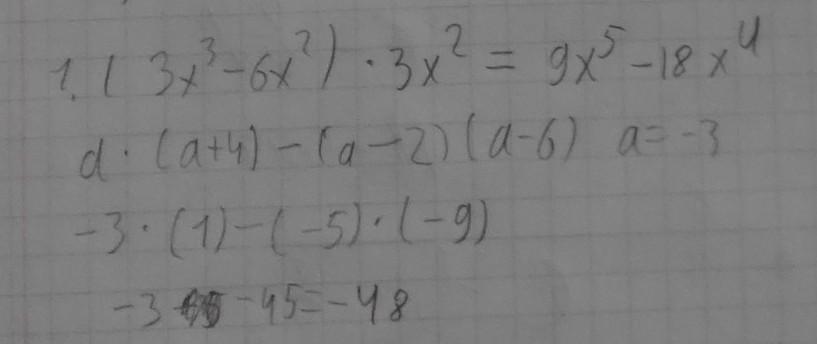 1. (3x³-6x²)·3x² = 9x⁵-18x⁴
a·(a+4)-(a-2)(a-6) a=-3
-3·(1)-(-5)·(-9)
-3 -45=-48